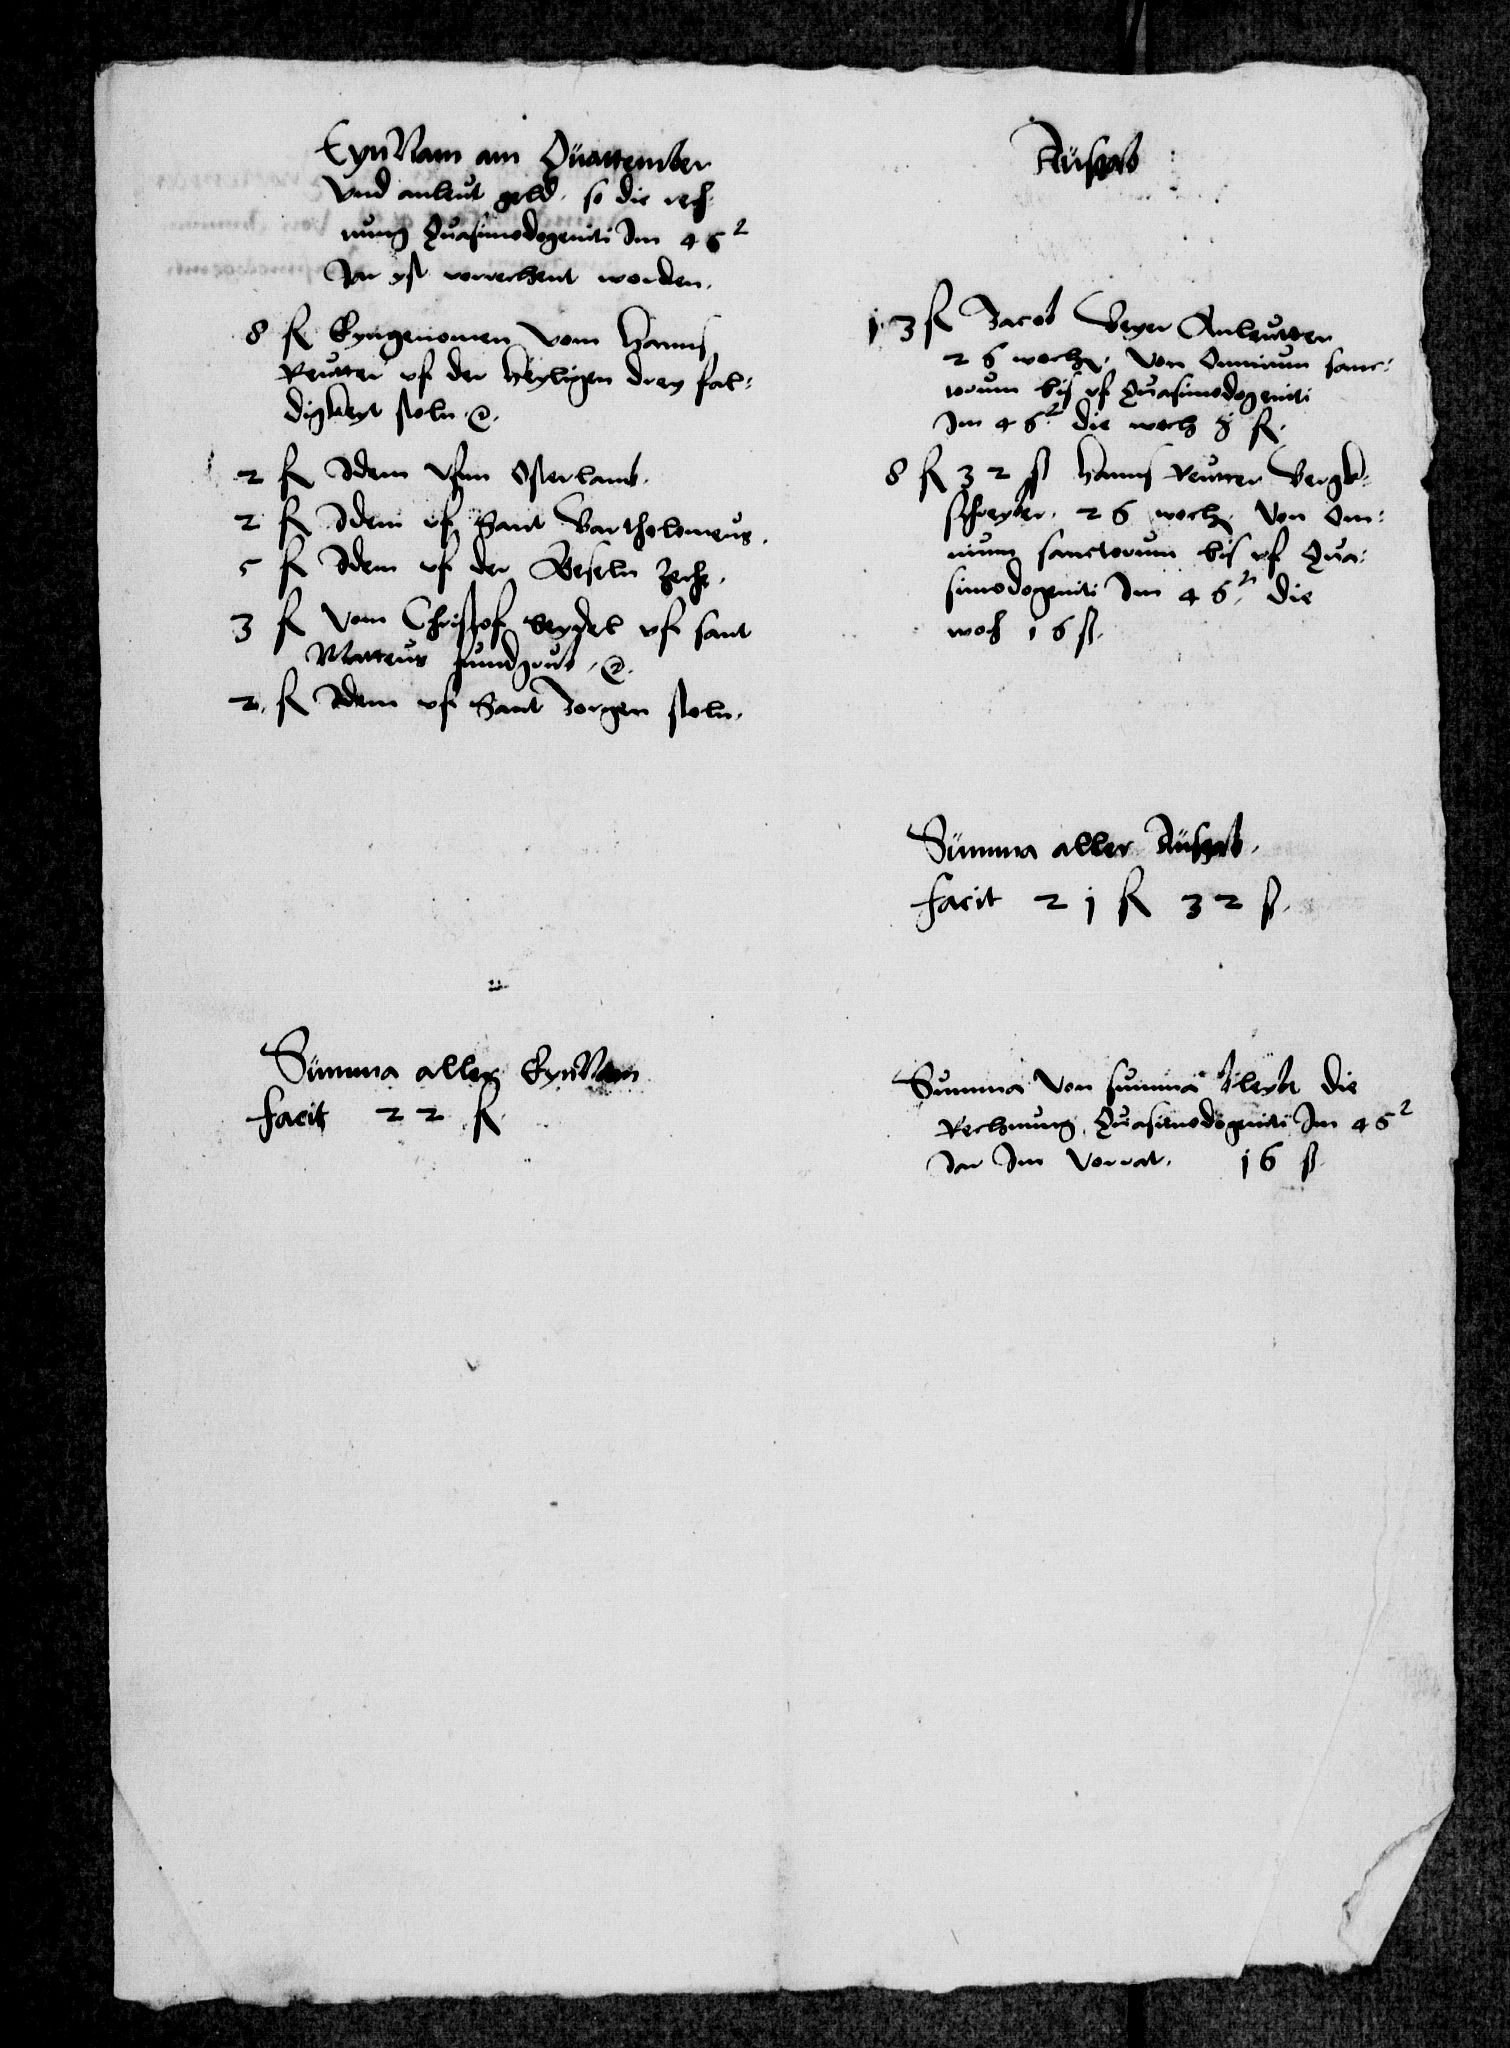 EynNam am Quattember
Vnd anleut geld. so die rech-
nung Quasimodogeniti Im 46²
Jar yst verrechent worden.
8 fl Eyngenomen vom Hanns
Reutter vf der Heyligen drey fal-
digkeyt stoln
2 fl Idem vfm Osterlamb.
2 fl Idem vf Sant Bartholomeus.
5 fl Idem vf der Zeche.
3 fl vom Christof Seydel vf sant
Matteus fundgrub
2. fl Idem vf Sant Jorgen stoln.
Summa aller EynNam
facit 22 fl.
Ausgab
13 fl Jacob Beyer Anleutter
26 woch. Von Omnium sanc-
torum bis vf Quasimodogeniti
Im 46² die woch fl.
8 fl 32 ß Hanns Reutter Bergk-
schreyber. 26 woch. Von Om-
nium sanctorum bis vf Qua-
simodogeniti Im 46² die
woch 16 ß.
Summa aller Ausgab.
facit 21 fl 32 ß.
Summa von summa bleybt die
Rechnung Quasimodogeniti Im 46²
Jar Im Vorrat. 16 ß.